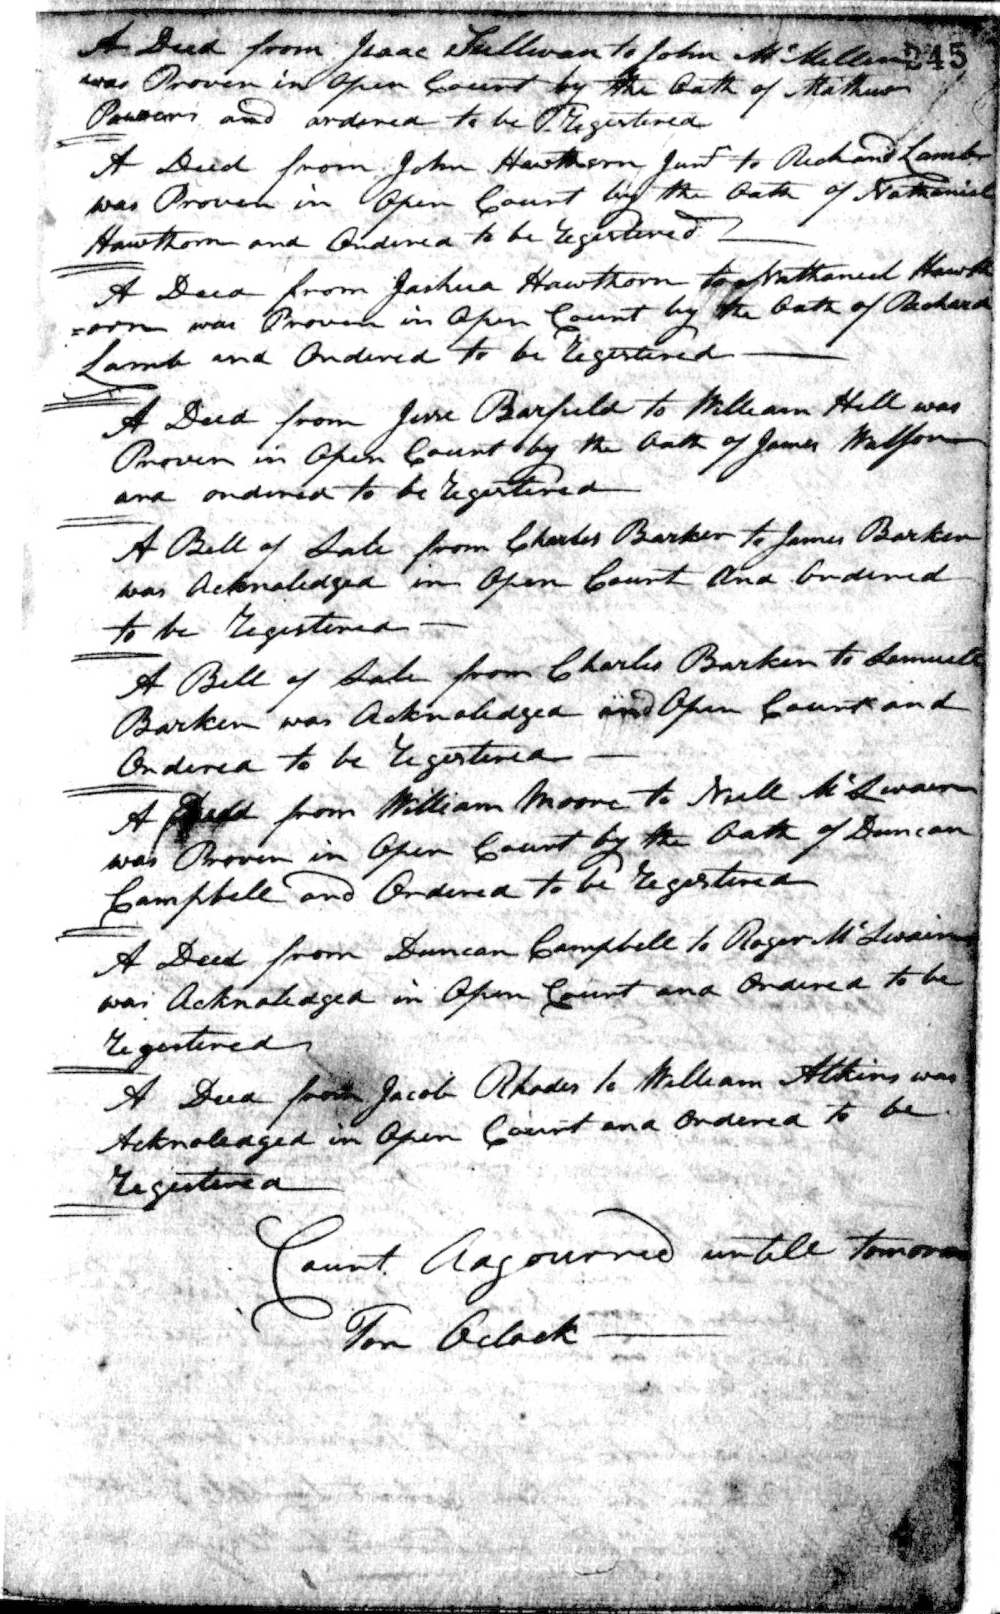 245
A Deed from Isaac Sullivan to John McMillen
was Proven in Open Court by the Oath of Mathew
Powers and ordered to be Registered
A Deed from John Hawthorn Junr to Richard Lamb
was Proven in Open Court by the Oath of Nathaniel
Hawthorn and Ordered to be Registered
A Deed from Joshua Hawthorn to Nathaniel Hawth
=orn was Proven in Open Court by the Oath of Richard
Lamb and Ordered to be Registered
A Deed from Jesse Barfield to William Hill was
Proven in Open Court by the Oath of James
and ordered to be Registered
A Bill of Sale from Charles Barker to James Barker
was Acknoledged in Open Court And Ordered
to be Registered
A Bill of Sale from Charles Barker to Samuell
Barker was Acknoledged and Open Court and
Ordered to be Registered
A Deed from William Moore to Neill McSwain
was Proven in Open Court by the Oath of Duncan
Campbell and Ordered to be Registered
A Deed from Duncan Campbell to Roger McSwain
was Acknoledged in Open Court and Ordered to be
Registered
A Deed from Jacob Rhodes to William Atkins was
Acknoledged in Open Court and Ordered to be
Registered
Court Adgourned untill tomorow
Ten Oclock